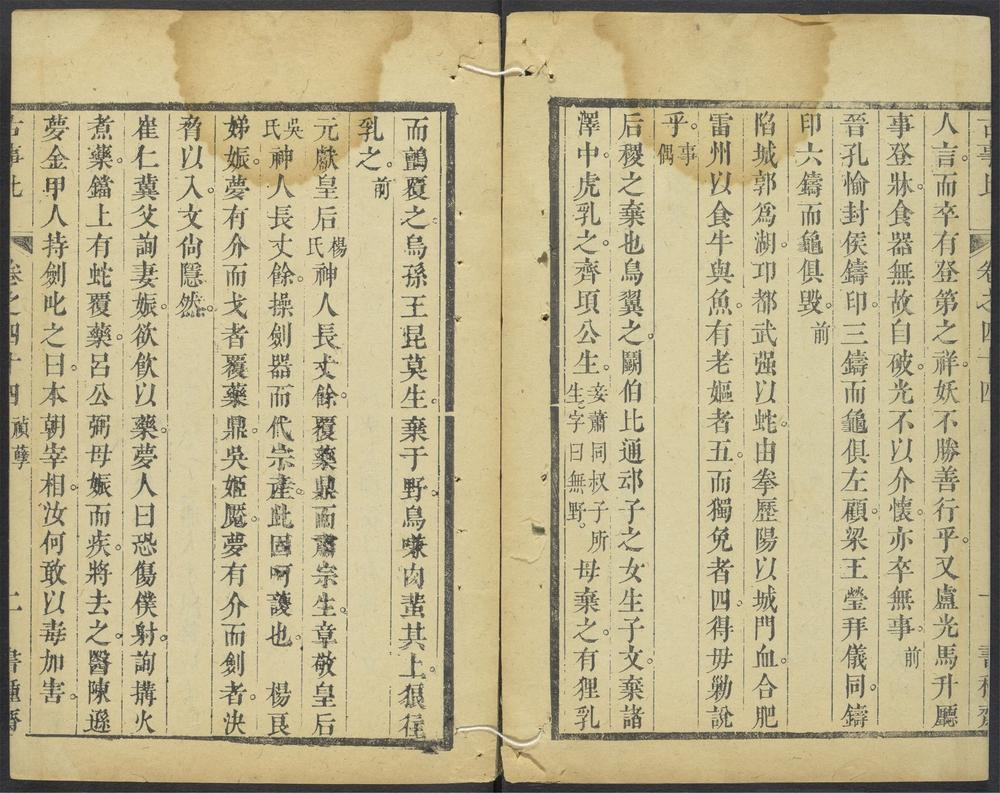 古事比
卷之四十四
一
書種齋
人言。而卒有登第之祥。妖不勝善行乎。又盧光馬升廳
事登牀。食器無故自破。光不以介懷。亦卒無事。前
晉孔愉封侯鑄印。三鑄而龜俱左顧。梁王瑩拜儀同。鑄
印六鑄而龜俱毀。前
陷城郭爲湖。卭都武强以蛇。由拳歷陽以城門血。合肥
雷州以食牛與魚。有老嫗者五。而獨免者四。得毋勦說
乎。事偶
后稷之棄也。鳥翼之。鬭伯比通䢵子之女。生子文。棄諸
澤中。虎乳之。齊頃公生。妾蕭同叔子所生字曰無野。母棄之。有狸乳
而鸇覆之。烏孫王昆莫生。棄于野。烏嗛肉蜚其上。狼徃
乳之。前
元獻皇后楊氏神人長丈餘。覆藥鼎而肅宗生。章敬皇后
吳氏神人長丈餘。操劍器而代宗產。此因呵護也 楊艮
娣娠。夢有介而戈者覆藥鼎。吳姬魘。夢有介而劍者。決
脅以入。文尙隱然。
崔仁冀父詢妻娠。欲飮以藥。夢人曰。恐傷僕射。詢搆火
煮藥。鐺上有蛇覆藥。呂公弼母娠而疾。將去之。醫陳遜
夢金甲人持劍叱之曰。本朝宰相。汝何敢以毒加害。
古事比
卷之四十四
禎孽
二
書種齋